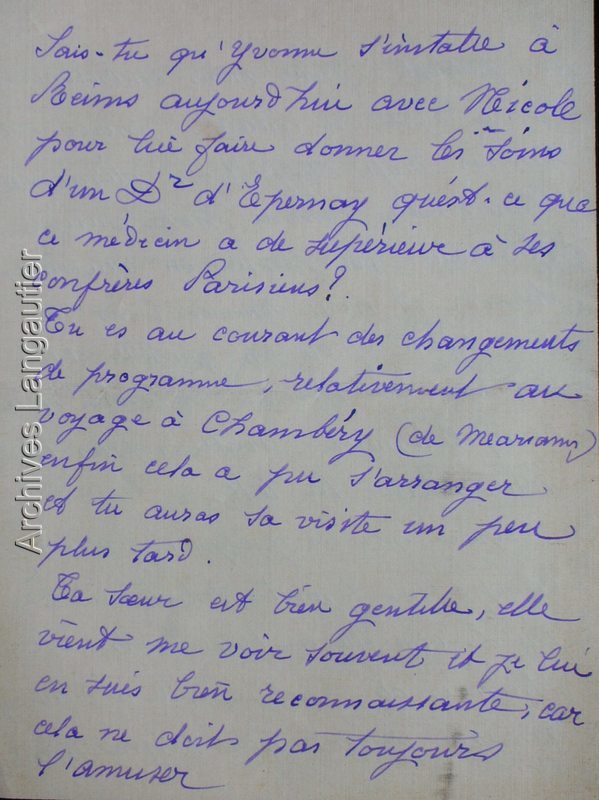 Sais-tu qu'Yvonne s'installe à
Reims aujourd'hui avec Nicole
pour lui faire donner les soins
d'un Dr d'Epernay qu'est-ce que
ce médecin a de supérieur à ses
confrères Parisiens ?
Tu es au courant des changements
de programme, relativement au
voyage à Chambéry (de Marianne)
enfin cela a pu s'arranger
et tu auras sa visite un peu
plus tard.
Ta sœur est bien gentille, elle
vient me voir souvent et je lui
en suis bien reconnaissante, car
cela ne doit pas toujours
l'amuser
Archives Langautier